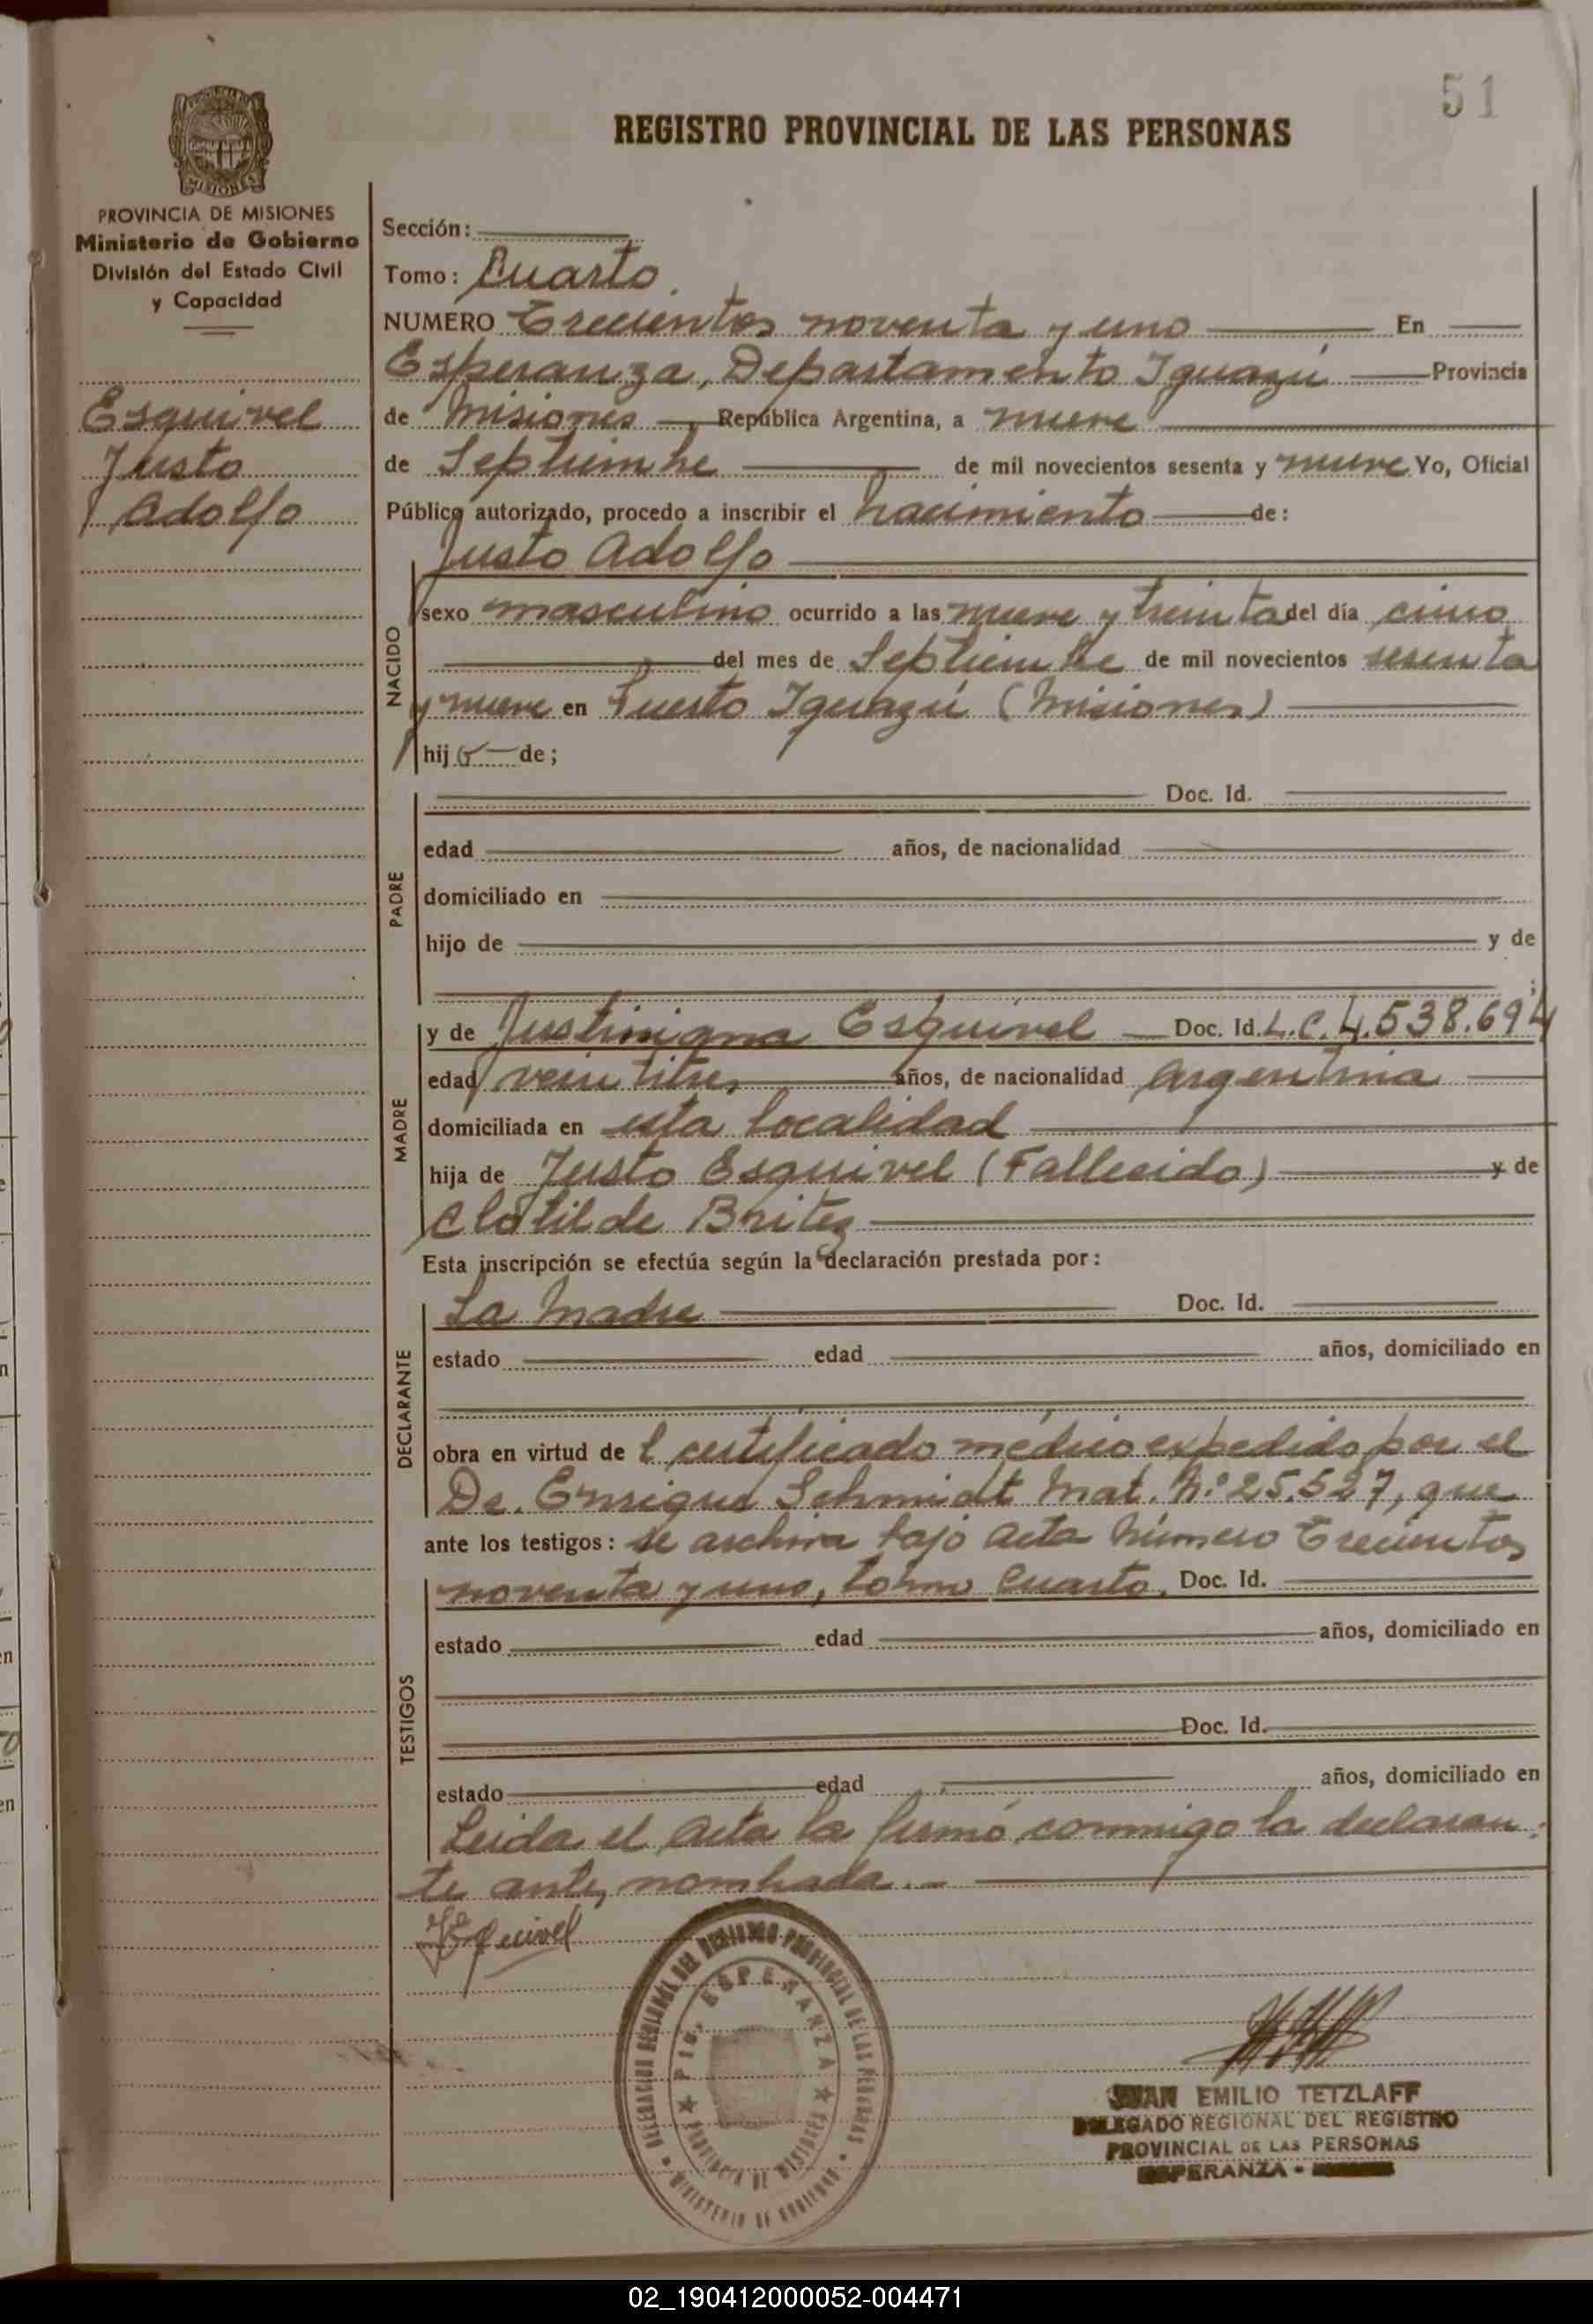 51
REGISTRO PROVINCIAL DE LAS PERSONAS
MISIONES
PROVINCIA DE MISIONES
Ministerio de Gobierno
División del Estado Civil
y Capacidad
Esquivel
Justo
Adolfo
Sección:
Tomo: Cuarto.
NUMERO Trecientos noventa y uno En
Esperanza, Departamento Iguazú Provincia
de Misiones, República Argentina, a nueve
de Septiembre de mil novecientos sesenta y nueve Yo, Oficial
Público autorizado, procedo a inscribir el nacimiento de:
Justo Adolfo
NACIDO
sexo masculino ocurrido a las nueve y treinta del día cinco
del mes de Septiembre de mil novecientos sesenta
y nueve en Puerto Iguazú (Misiones)
hijo de;
PADRE
Doc. Id.
edad años, de nacionalidad
domiciliado en
hijo de y de
;
MADRE
y de Justiniana Esquivel Doc. Id. L.C. 4.538.694
edad veintitres años, de nacionalidad Argentina
domiciliada en esta localidad
hija de Justo Esquivel (Fallecido) y de
Clotilde Britez
Esta inscripción se efectúa según la declaración prestada por:
DECLARANTE
La Madre Doc. Id.
estado edad años, domiciliado en
obra en virtud del certificado médico expedido por el
Dr. Enrique Schmidt Mat. Nº 25.527, que
ante los testigos: se archiva bajo Acta Número Trecientos
noventa y uno, tomo Cuarto. Doc. Id.
TESTIGOS
estado edad años, domiciliado en
Doc. Id.
estado edad años, domiciliado en
Leida el Acta la firmó conmigo la declaran-
te antes nombrada.-
J. Esquivel
DELEGACION REGIONAL DEL REGISTRO PROVINCIAL DE LAS PERSONAS
Pto. ESPERANZA
PROVINCIA DE MISIONES
MINISTERIO DE GOBIERNO
JUAN EMILIO TETZLAFF
DELEGADO REGIONAL DEL REGISTRO
PROVINCIAL DE LAS PERSONAS
ESPERANZA -
02_190412000052-004471